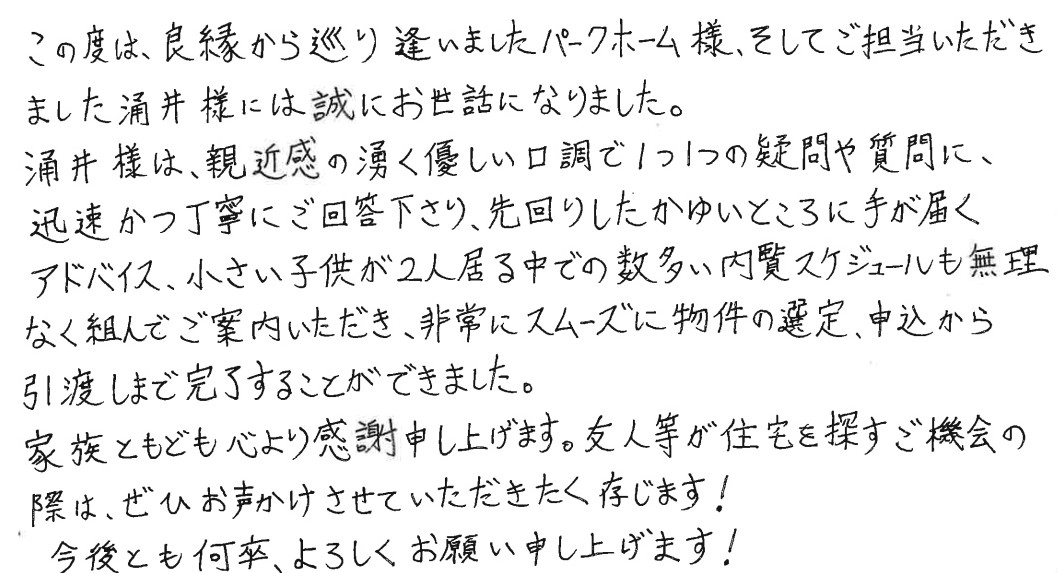 この度は、良縁から巡り逢いましたパークホーム様、そしてご担当いただき
ました涌井様には誠にお世話になりました。
涌井様は、親近感の湧く優しい口調で1つ1つの疑問や質問に、
迅速かつ丁寧にご回答下さり、先回りしたかゆいところに手が届く
アドバイス、小さい子供が2人居る中での数多い内覧スケジュールも無理
なく組んでご案内いただき、非常にスムーズに物件の選定、申込から
引渡しまで完了することができました。
家族ともども心より感謝申し上げます。友人等が住宅を探すご機会の
際は、ぜひお声かけさせていただきたく存じます！
今後とも何卒、よろしくお願い申し上げます！